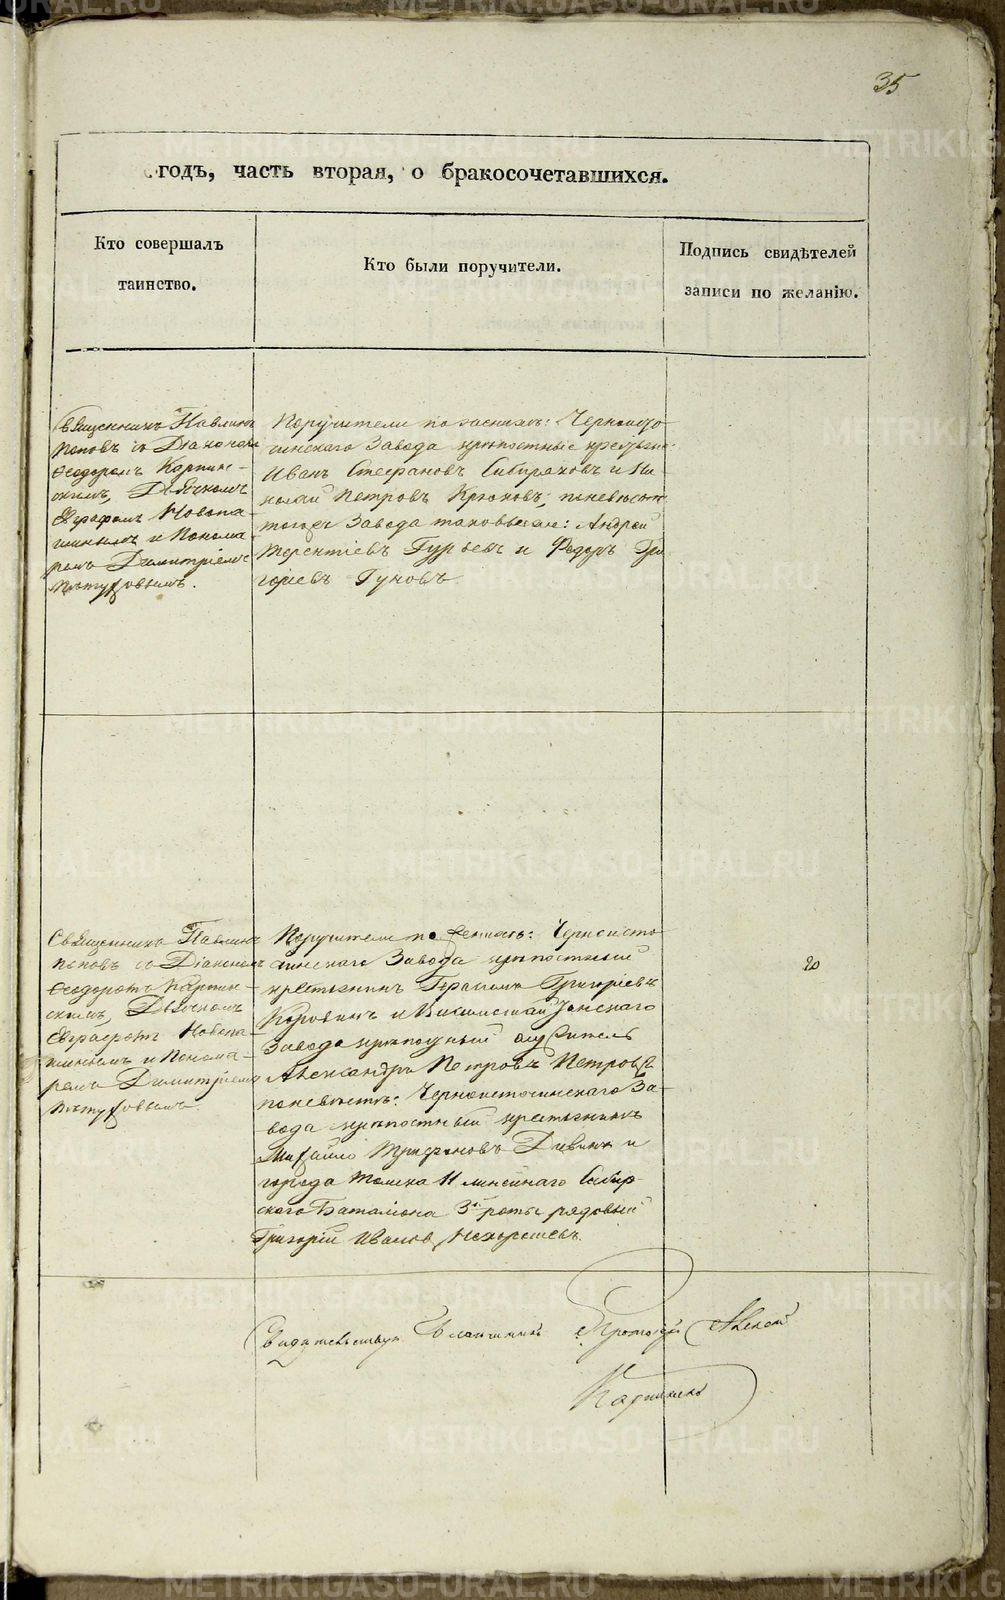 35
годъ, часть вторая, о бракосочетавшихся.
Кто совершалъ
таинство.
Кто были поручители.
Подпись свидѣтелей
записи по желанію.
Священникъ Павлинъ
Поповъ съ Діакономъ
Ѳеодоромъ Карпин-
скимъ, Дьячкомъ
Евграфомъ Новопа-
шинымъ и Понома-
ремъ Димитріемъ
Пѣтуховымъ.
Поручители по женихѣ: Черноисто-
чинскаго Завода крѣпостные крестьяне
Иванъ Стефановъ Сибиряковъ и Ни-
колай Петровъ Крюковъ; по невѣстѣ
того же Завода таковые же: Андрей
Терентіевъ Гурьевъ и Федоръ Гри-
горіевъ Гуновъ
Священникъ Павлинъ
Поповъ съ Діакономъ
Ѳеодоромъ Карпин-
скимъ, Дьячкомъ
Евграфомъ Новопа-
шинымъ и Понома-
ремъ Димитріемъ
Пѣтуховымъ
Поручители по женихѣ: Черноисто-
чинскаго Завода крѣпостный
крестьянинъ Герасимъ Григоріевъ
Коровинъ и Висимошайтанскаго
Завода крѣпостный служитель
Александръ Петровъ Петровъ,
по невѣстѣ: Черноисточинскаго За-
вода крѣпостный крестьянинъ
Михайло Трифоновъ Дивинъ и
города Томска 11 линейнаго Сибир-
скаго Баталіона 3й роты рядовый
Григорій Ивановъ Нехорошевъ.
20
Свидѣтельствовалъ Благочинный Протоіерей Алексѣй
Карпинскій
METRIKI.GASO-URAL.RU